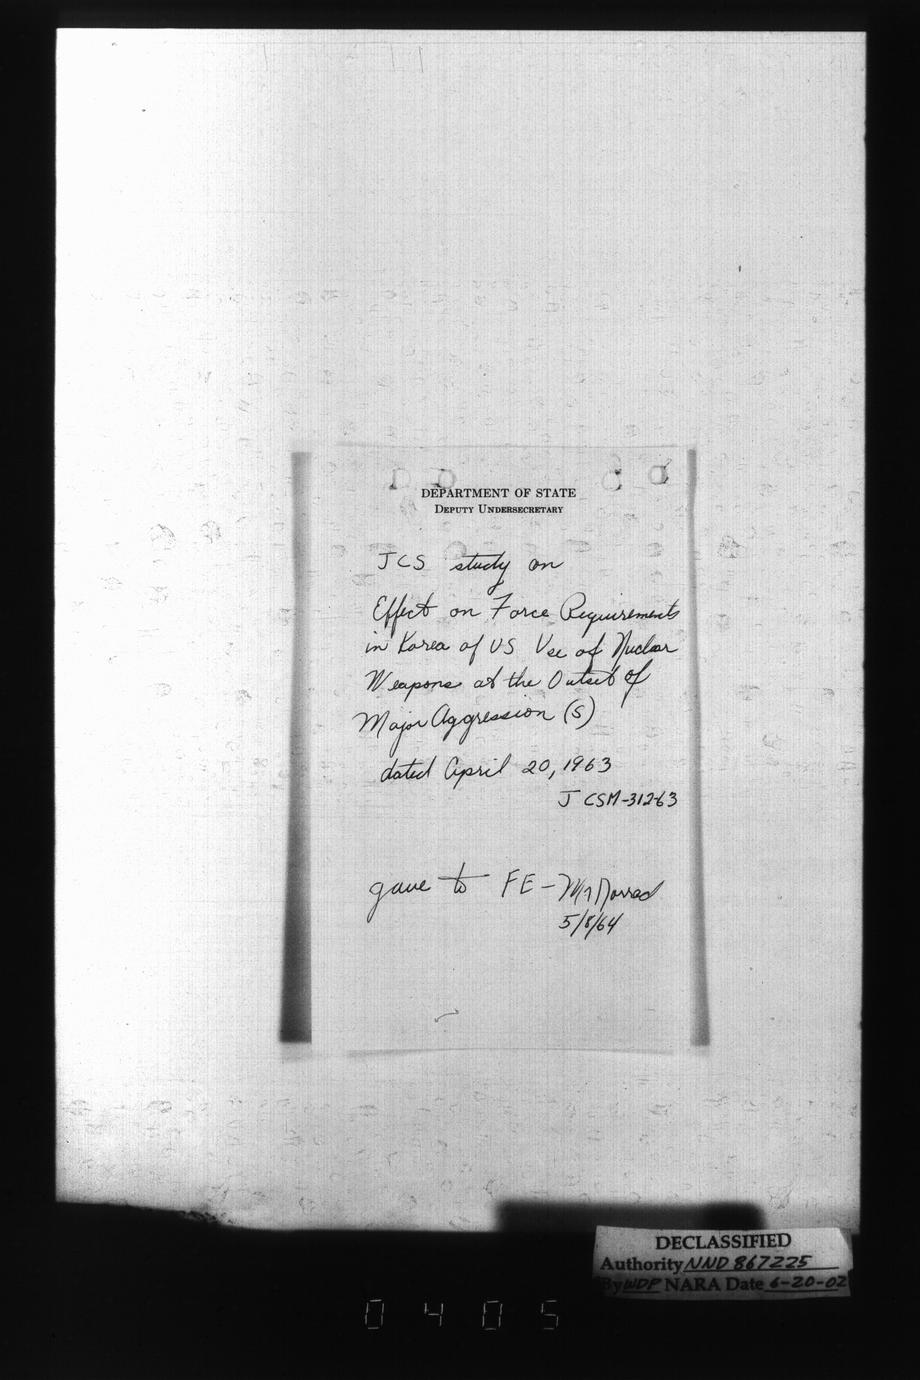 DEPARTMENT OF STATE
DEPUTY UNDERSECRETARY
JCS study on
Effect on Force Requirements
in Korea of US Use of Nuclear
Weapons at the Outset of
Major Aggression (S)
dated April 20, 1963
JCSM-312-63
gave to FE - Mr
5/8/64
DECLASSIFIED
Authority NND 867225
By WDP NARA Date 6-20-02
0405